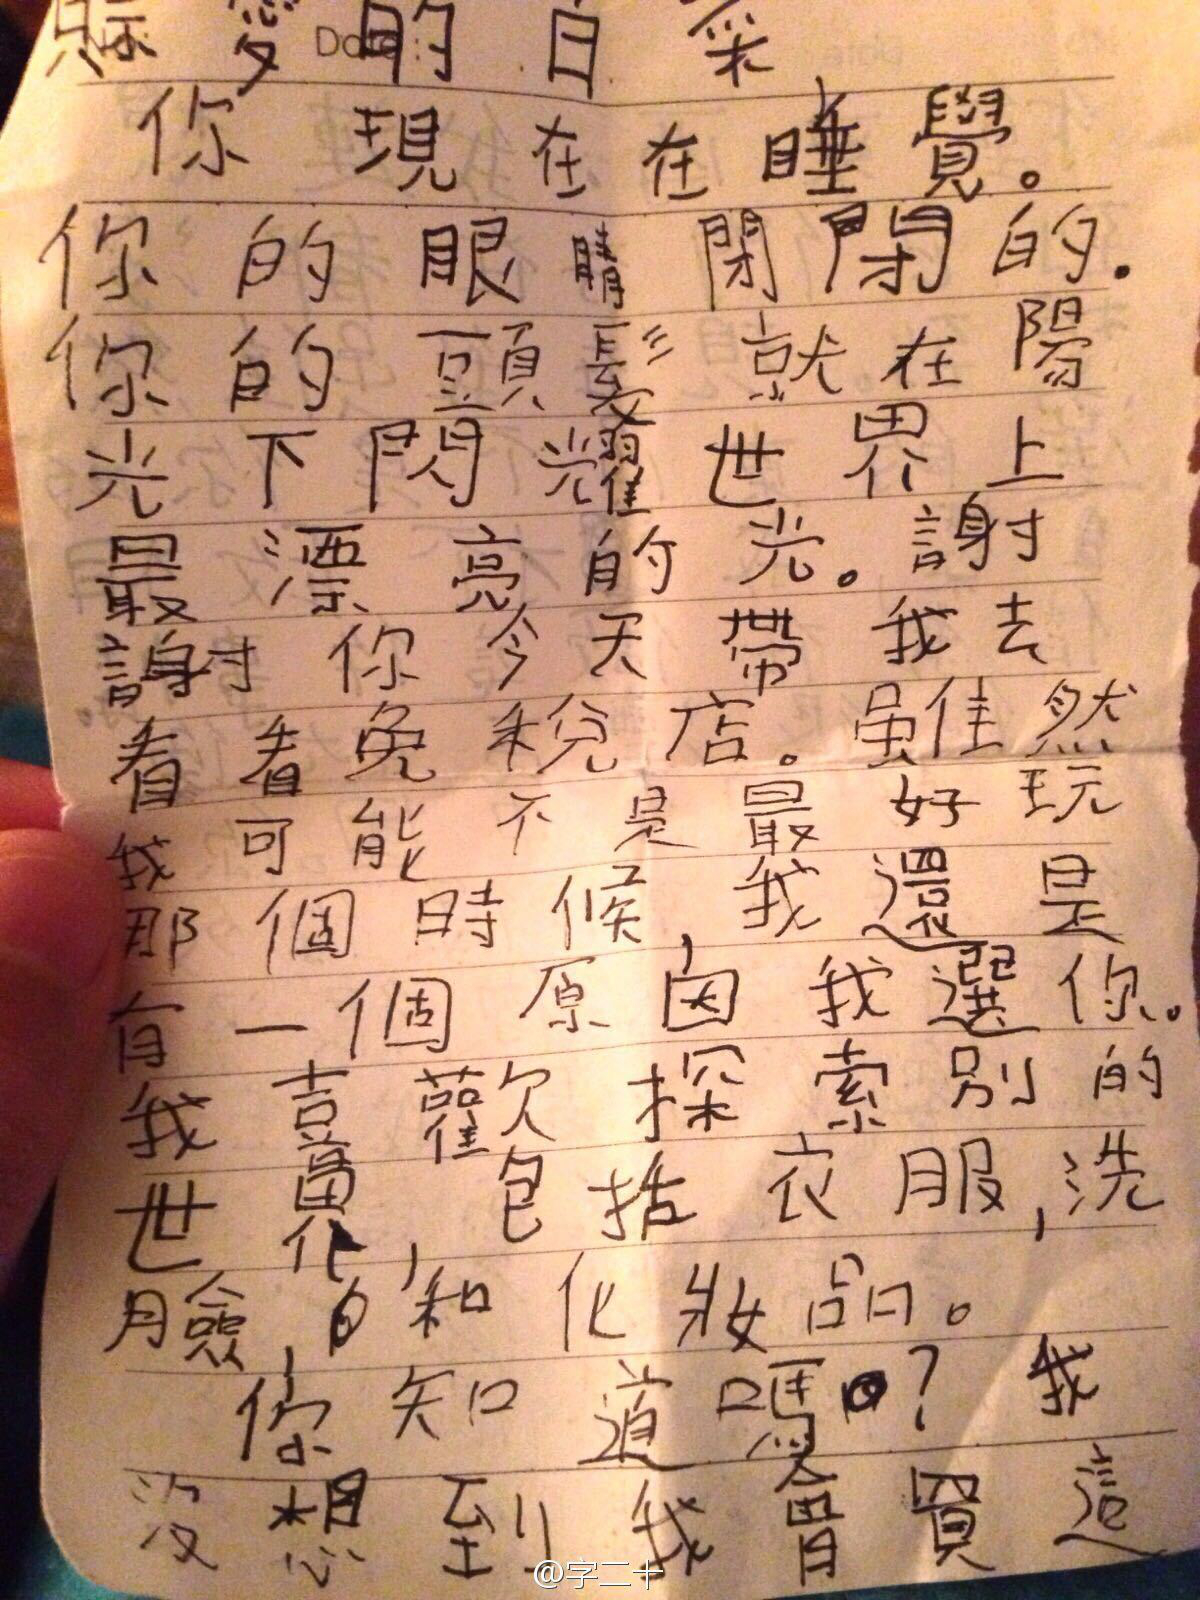 愛的白菜
你現在在睡覺。
你的眼睛閉閉的.
你的頭髮就在陽
光下閃耀世界上
最漂亮的光。謝
謝你今天帶我去
看看免稅店。雖然
我可能不是最好玩
那個時候,我還是
有一個原因我選你。
我喜歡探索別的
世界,包括衣服,洗
臉,和化妝品。
你知道嗎?我
沒想到我會買這
@字二十